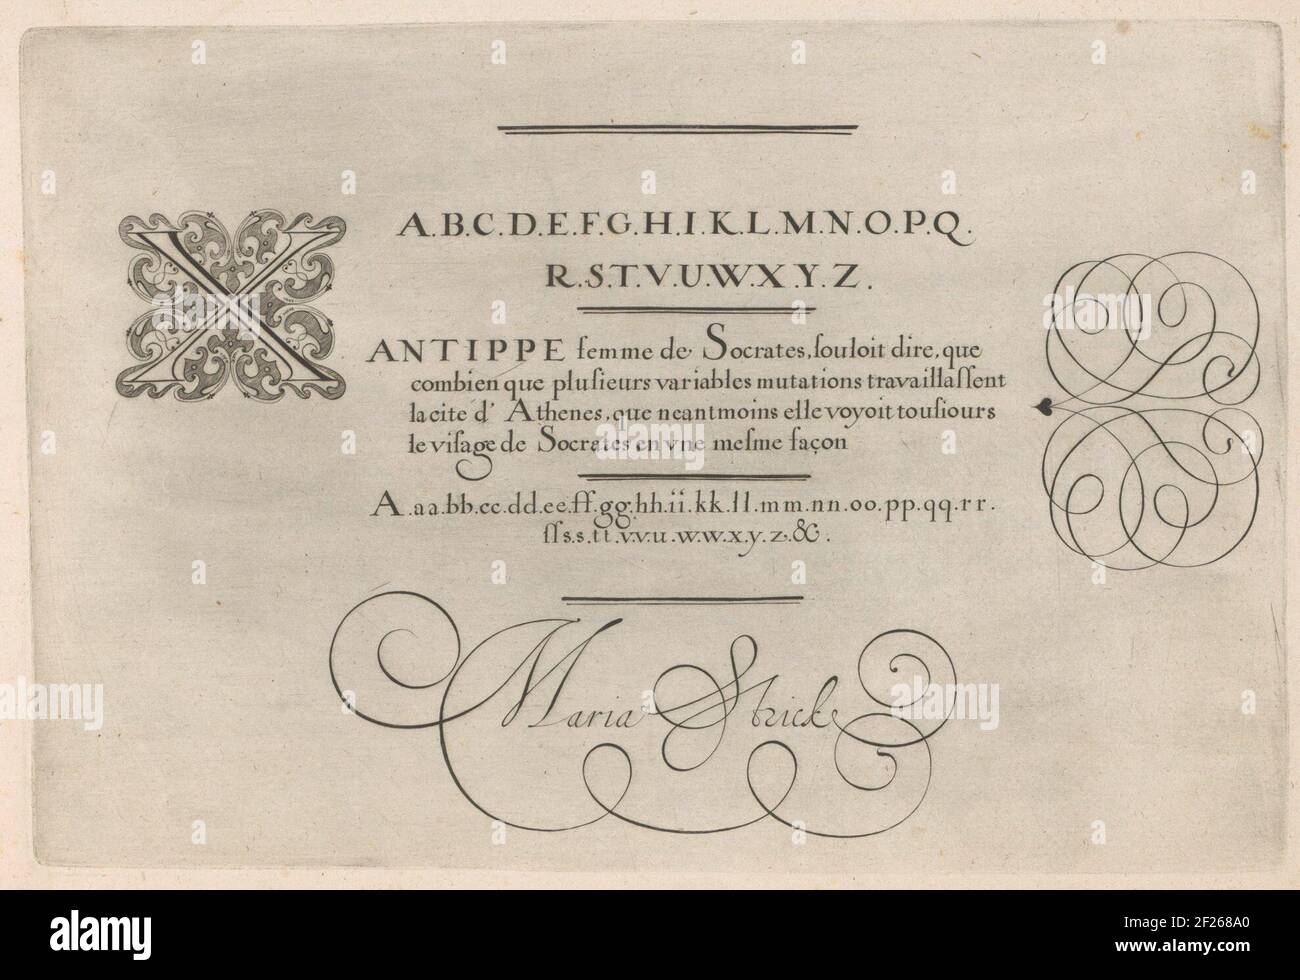 A.B.C.D.E.F.G.H.I.K.L.M.N.O.P.Q.
R.S.T.V.U.W.X.Y.Z.
XANTIPPE femme de Socrates, ſouloit dire, que
combien que pluſieurs variables mutations travaillaſſent
la cite d' Athenes, que neantmoins elle voyoit touſiours
le viſage de Socrates en vne meſme façon
A.aa.bb.cc.dd.ee.ff.gg.hh.ii.kk.ll.mm.nn.oo.pp.qq.rr.
ſſs.s.tt.v.v.u.w.w.x.y.z.&.
Maria Strick
alamy
Image ID: 2F268A0
www.alamy.com